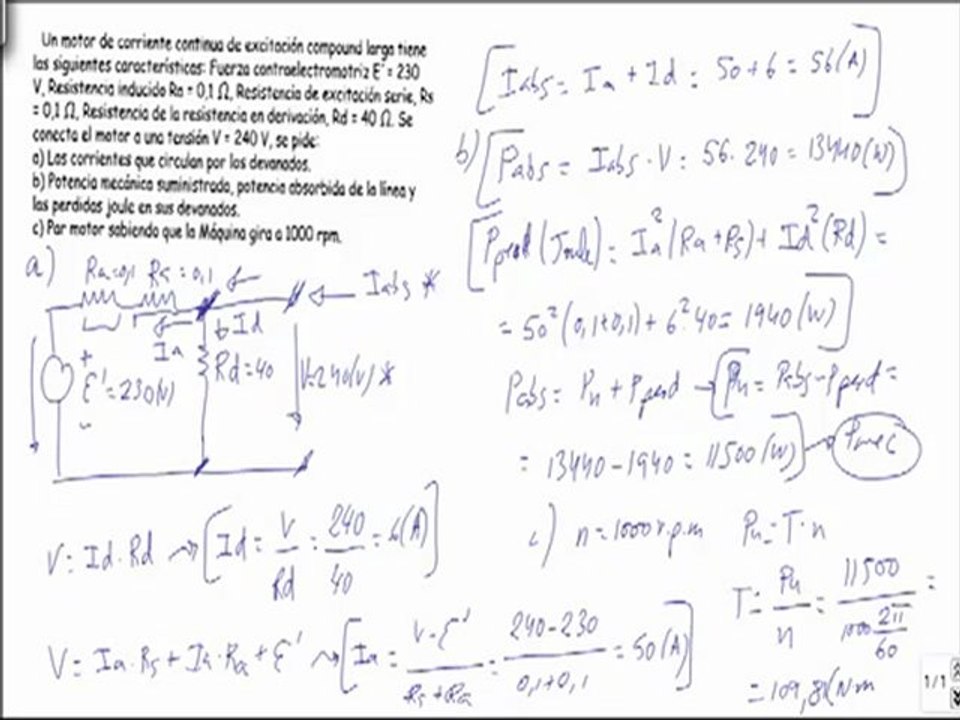 Un motor de corriente continua de excitación compound larga tiene
las siguientes características: Fuerza contraelectromotriz E' = 230
V, Resistencia inducido Ra = 0,1 Ω, Resistencia de excitación serie, Rs
= 0,1 Ω, Resistencia de la resistencia en derivación, Rd = 40 Ω. Se
conecta el motor a una tensión V = 240 V, se pide:
a) Las corrientes que circulan por los devanados.
b) Potencia mecánica suministrada, potencia absorbida de la línea y
las perdidas joule en sus devanados.
c) Par motor sabiendo que la Máquina gira a 1000 rpm.
a)
Ra=0,1 Rs=0,1
Iabs *
Id
Ia
Rd=40
V=240(V) *
+
E'=230(V)
-
V= Id·Rd → [Id = V/Rd = 240/40 = 6(A)]
V= Ia·Rs + Ia·Ra + E' → [Ia = V-E'/Rs+Ra = 240-230/0,1+0,1 = 50(A)]
[Iabs = Ia + Id = 50+6 = 56(A)]
b) [Pabs = Iabs·V = 56·240 = 13440(W)]
[Pperd (Joule) = Ia²(Ra+Rs) + Id²(Rd) =
= 50²(0,1+0,1) + 6²·40 = 1940(W)]
Pabs = Pu + Pperd → [Pu = Pabs-Pperd =
= 13440-1940 = 11500(W)] → Pmec
c) n=1000 r.p.m Pu=T·n
T= Pu/n = 11500/1000 2π/60 =
= 109,81(N·m
1/1